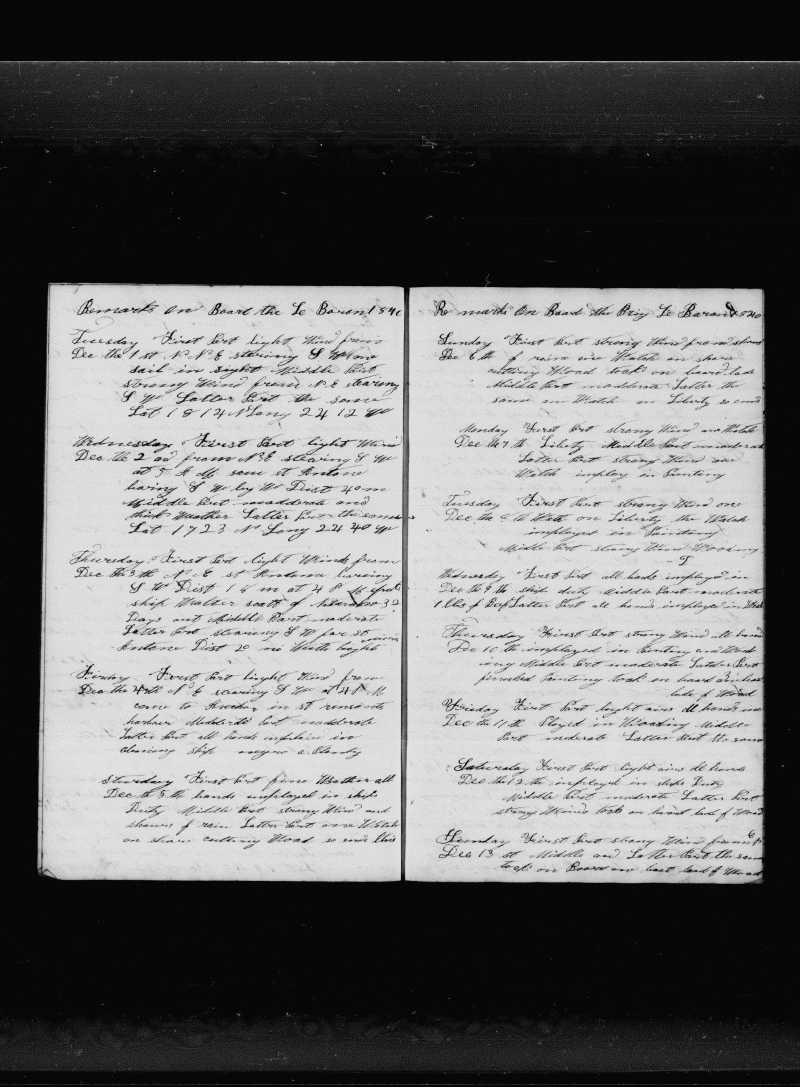 Remarks on Board the Le Baron 1840
Tuesday First Part light Wind from
Dec the 1 st N N E stearing S W one
sail in sight Middle Part
strong Wind from N E stearing
S W Latter Part the same
Lat 18 12 N Long 24 12 W
Wednesday First Part light Wind
Dec the 2 nd from N E stearing S W
at 5 A M seen st Antone
baring S W by W Dist 40 m
Middle Part madderate and
thick Weather Latter Part the same
Lat 17 23 N Long 24 40 W
Thursday First Part light Winds from
Dec the 3 th N E st Antone baring
S W Dist 18 m at 4 P M spok
ship Walter scott of 32
Days out Middle Part moderate
Latter Part stearing S W for st
Antone Dist 20 m Wind light
Friday First Part light Wind from
Dec the 4 th N E stearing S W at 4 P M
come to Anchor in st
harbour Midderate Part madderate
Latter Part all hands imployed in
cleaning ship
Sturday First Part fine Weather all
Dec the 5 th hands imployed in ship
Duty Middle Part strong Wind and
shours of rain Latter Part one Watch
on shore cutting Wood so ends this
Remarks On Board the Brig Le Baron 1840
Sunday First Part strong Wind from
Dec 6 th of rain one Watch on shore
cutting Wood took on board lode
Middle Part madderate Latter the
same one Watch on Liberty so ends
Monday First Part strong Wind one Watch
Dec the 7 th Liberty Middle Part madderate
Latter Part strong Wind one
Watch imploy in Painting
Tuesday First Part strong Wind one
Dec the 8 th Watch on Liberty the Watch
imployed in Painting
Middle Part strong Wind Wooding
Wednesday First Part all hands imployed in
Dec the 9 th ship duty Middle Part moderate
1 Cbs of Beef Latter Part all hands imployed in
Thursday First Part strong Wind all hands
Dec 10 th imployed in Painting and Wood
ing Middle Part moderate Latter Part
finished Painting took on board one boat
lode of Wood
Friday First Part light airs all hands
Dec the 11 th Ployed in Wooding Middle
Part moderate Latter Part the same
Saturday First Part light airs all hands
Dec the 12 th imployed in ships Duty
Middle Part moderate Latter Part
strong Winds took on board lode of Wood
Sunday First Part strong Wind from
Dec 13 st Middle and Latter Part the same
took on Board one boat load of Wood